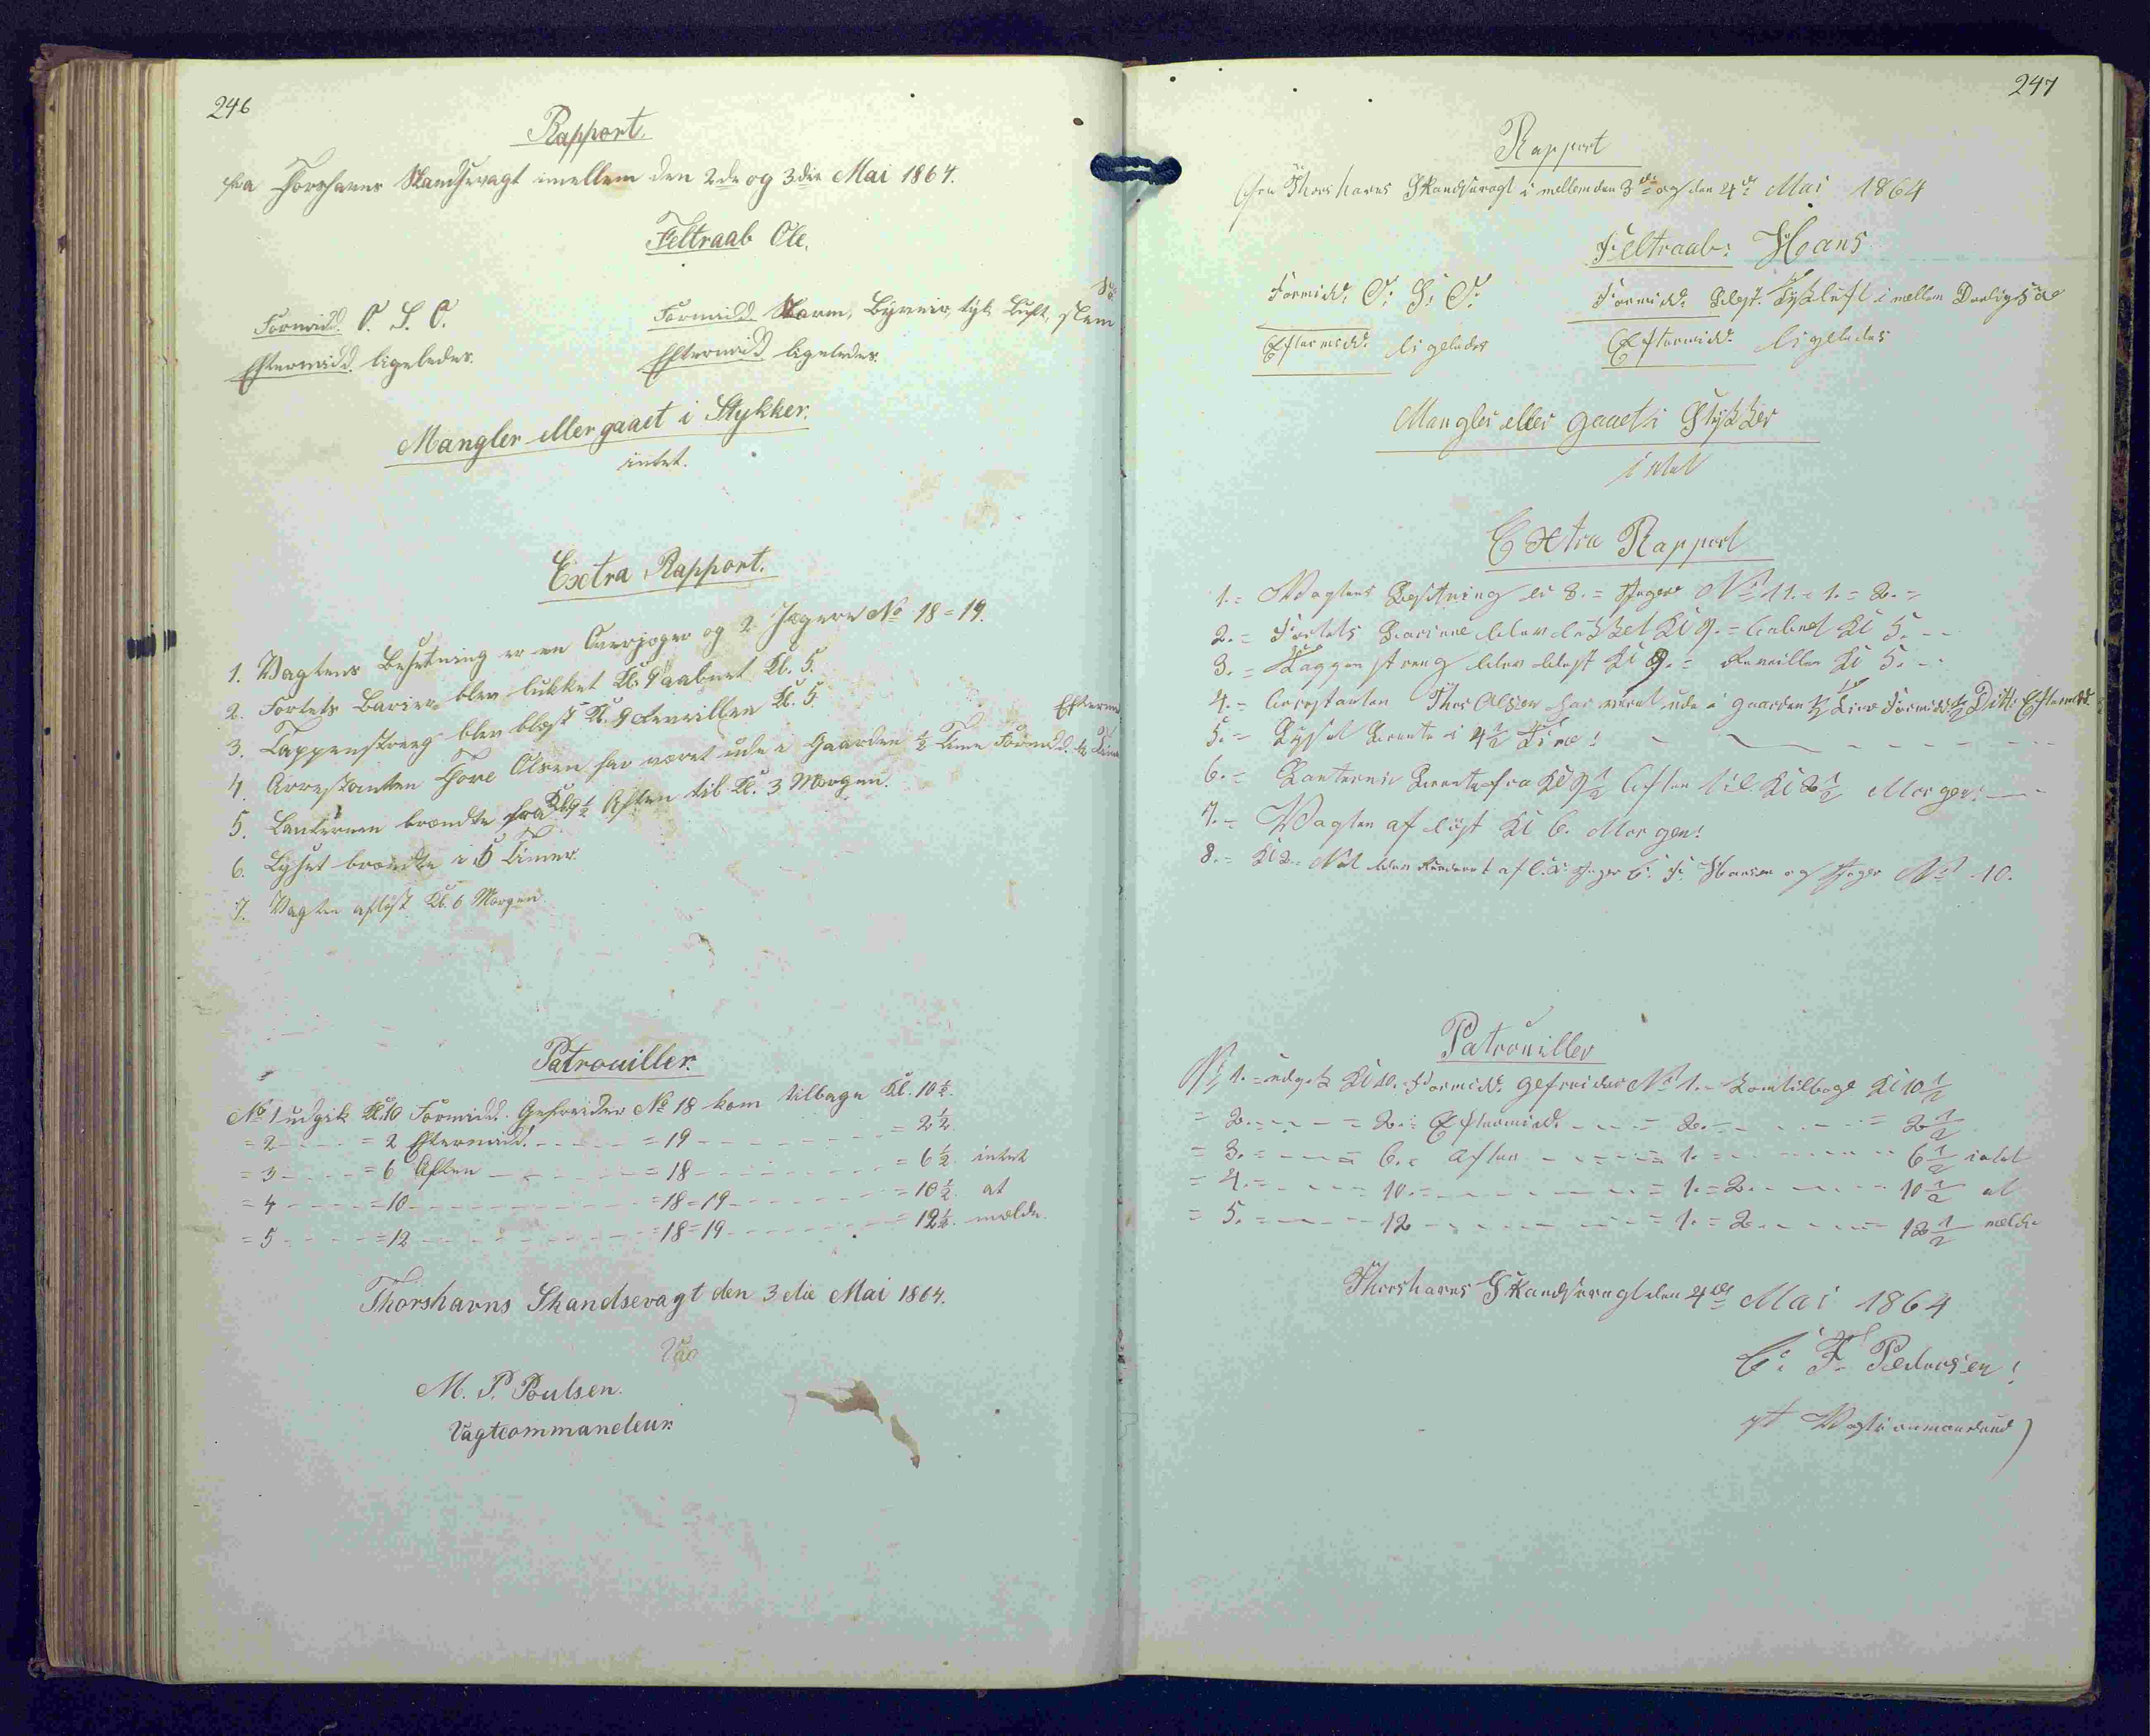 246
Rapport
fra Thorshavns Skandsevagt imellem den 2de og 3die Mai 1864.
Feltraab Ole.
Formidd. O. S. O.
Formidd. Storm, Byveir, tyk Luft, slem Sø
Eftermidd. ligeledes.
Eftermidd. ligeledes.
Mangler eller gaaet i Stykker.
intet.
Extra Rapport.
1. Vagtens Besetning er en Overjæger og 2 Jægere No 18 = 19.
2. Fortets Barier blev lukket Kl. 9 aabnet Kl. 5.
3. Tappenstreeg blev blæst Kl. 9 Reveillen Kl. 5.
4. Arrestanten Thore Olsen har været ude i Gaarden ½ Time Formidd. ½ Time Efterm
5. Lanternen brændte fra Kl. 9½ Aften til Kl. 3 Morgen.
6. Lyset brændte i 5 Timer.
7. Vagten afløst Kl. 6 Morgen.
Patrouiller.
No 1 udgik Kl. 10 Formidd. Gefreider No 18 kom tilbage Kl. 10½.
= 2 - - - = 2 Eftermidd. - - - = 19 - - - = 2½
= 3 - - - = 6 Aften - - - = 18 - - - = 6½ intet
= 4 - - - = 10 - - - = 18 = 19 - - - = 10½ at
= 5 - - - = 12 - - - = 18 = 19 - - - = 12½ melde.
Thorshavns Skandsevagt den 3die Mai 1864.
M. P. Poulsen.
Vagtcommandeur.
247
Rapport
fra Thorshavns Skandsevagt imellem den 3de og den 4de Mai 1864
Feltraab: Hans
Formidd: O: S: O:
Formidd: Blæst. Tyk luft imellem Daarlig Sø
Eftermidd: ligeledes
Eftermidd: ligeledes
Mangler eller gaaet i Stykker
intet
Extra Rapport
1. = Vagtens Besetning er 3. = Jægere No 11. = 1. = 2. =
2. = Fortets Bariere blev lukket Kl 9. = aabnet Kl 5. - -
3. = Tappenstreng blev blæst Kl 9. = Reveillen Kl 5. - -
4. = Arrestanten Thor Olsen har været ude i gaarden ½ Time Formidd: ½ Ditto Eftermidd.
5. = Lyset Brænte i 4½ Time!
6. = Lanternen Brænte fra Kl 9½ Aften til Kl 2½ Morgen!
7. = Vagten afløst Kl 6. Morgen!
8. = Kl 2. Nat blev Runderet af O.Jæger C. F. Hansen og Jæger No 10.
Patrouiller
No 1. = udgik Kl 10. Formidd: gefreider No 1. = kom tilbage Kl 10½
= 2. = - - - = 2. = Eftermidd. - - - = 2. = - - - = 2½
= 3. = - - - = 6. = Aften - - - = 1. = - - - 6½ intet
= 4. = - - - 10. = - - - = 1. = 2. - - - 10½ at
= 5. = - - - 12 - - - = 1. = 2. - - - = 12½ melde
Thorshavns Skandsevagt den 4de Mai 1864
C. F. Pedersen!